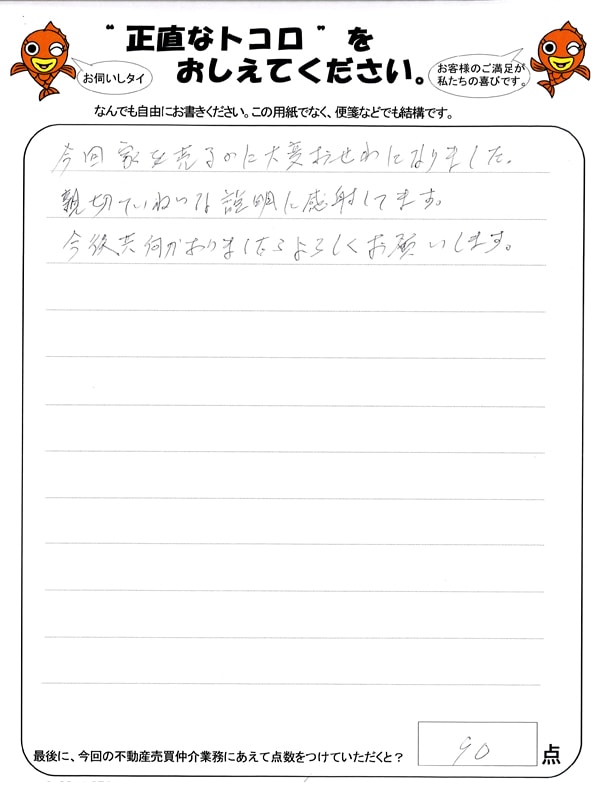 “正直なトコロ”を
おしえてください。
お伺いしタイ
お客様のご満足が
私たちの喜びです。
なんでも自由にお書きください。この用紙でなく、便箋などでも結構です。
今回家を売るのに大変おせわになりました。
親切ていねいな説明に感射してます。
今後共何かありましたらよろしくお願いします。
最後に、今回の不動産売買仲介業務にあえて点数をつけていただくと？
90
点